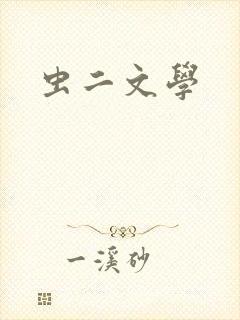 虫二文學
一溪砂